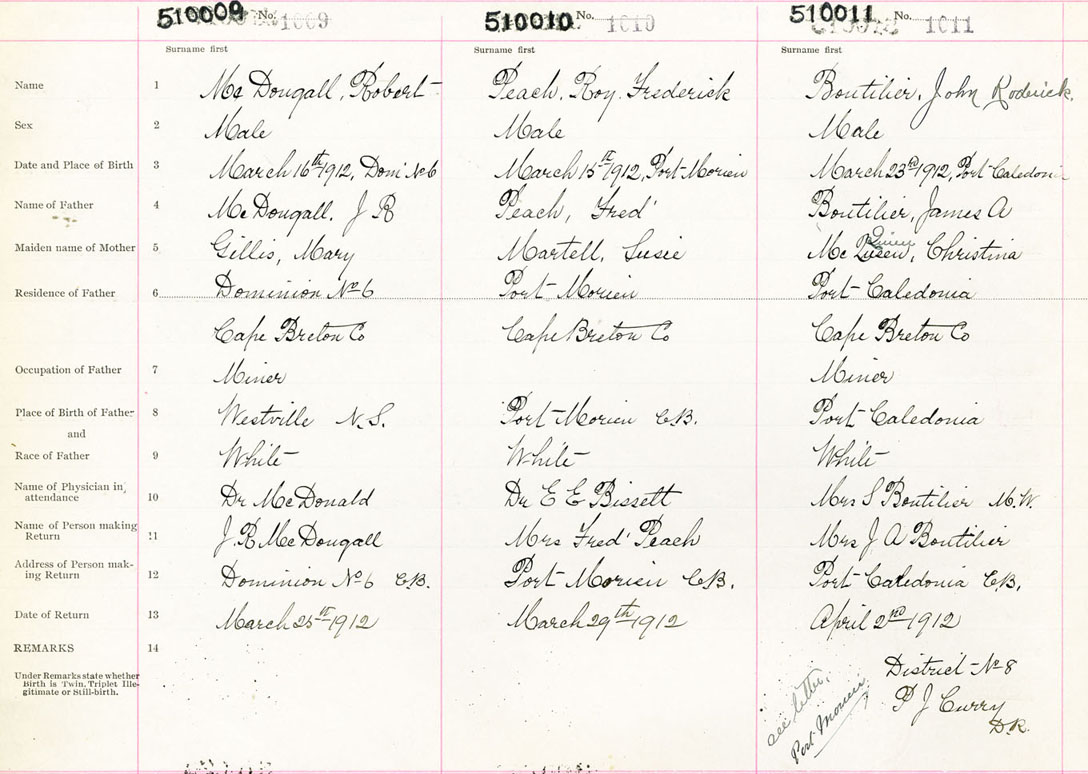 510009 No. 1009 510010 No. 1010 510011 No. 1011
Surname first Surname first Surname first
Name 1 McDougall, Robert Peach, Roy. Frederick Boutilier, John Roderick.
Sex 2 Male Male Male
Date and Place of Birth 3 March 16th 1912, Dom' No 6 March 15th 1912, Port-Morien March 23rd 1912, Port Caledonia
Name of Father 4 McDougall. J R Peach, Fred' Boutilier, James A
Maiden name of Mother 5 Gillis, Mary Martell, Susie Mc Christina
Residence of Father 6 Dominion No 6 Port-Morien Port-Caledonia
Cape Breton Co Cape Breton Co Cape Breton Co
Occupation of Father 7 Miner Miner
Place of Birth of Father 8 Westville N.S. Port-Morien C.B. Port-Caledonia
and
Race of Father 9 White White White
Name of Physician in
attendance 10 Dr McDonald Dr E E Bissett Mrs S Boutilier M.W.
Name of Person making
Return 11 J.R McDougall Mrs Fred' Peach Mrs J A Boutilier
Address of Person mak-
ing Return 12 Dominion No 6 C.B. Port-Morien C.B. Port-Caledonia C.B.
Date of Return 13 March 1912 March 29th 1912 April 2nd 1912
REMARKS 14
Under Remarks state whether
Birth is Twin, Triplet Ille-
gitimate or Still-birth.
District-No 8
P J Curry
D.R.
see letter.
Port Morien